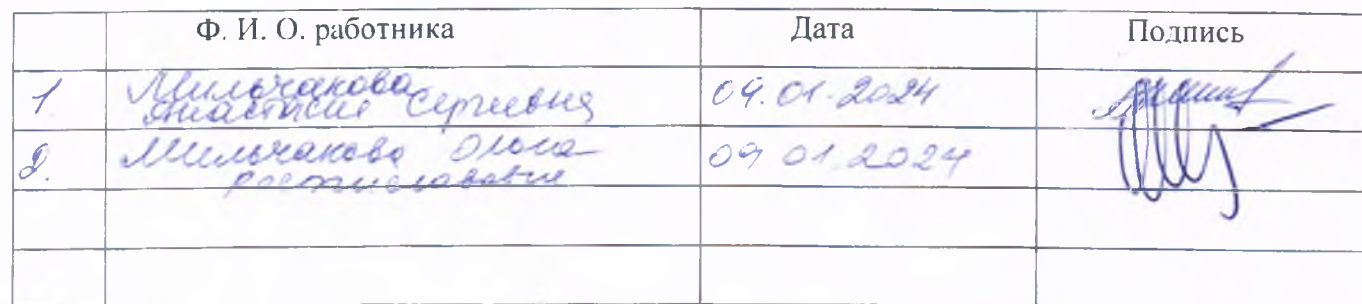 Ф. И. О. работника Дата Подпись
1 Мильчакова
Анастасия Сергеевна 09.01.2024
2. Мильчакова Ольга 09 01.2024